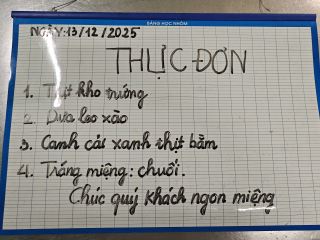 BẢNG HỌC NHÓM
NGÀY:13/12/2025
THỰC ĐƠN
1. Thịt kho trứng
2. Dưa leo xào
3. Canh cải xanh thịt bằm
4. Tráng miệng: chuối.
Chúc quý khách ngon miệng